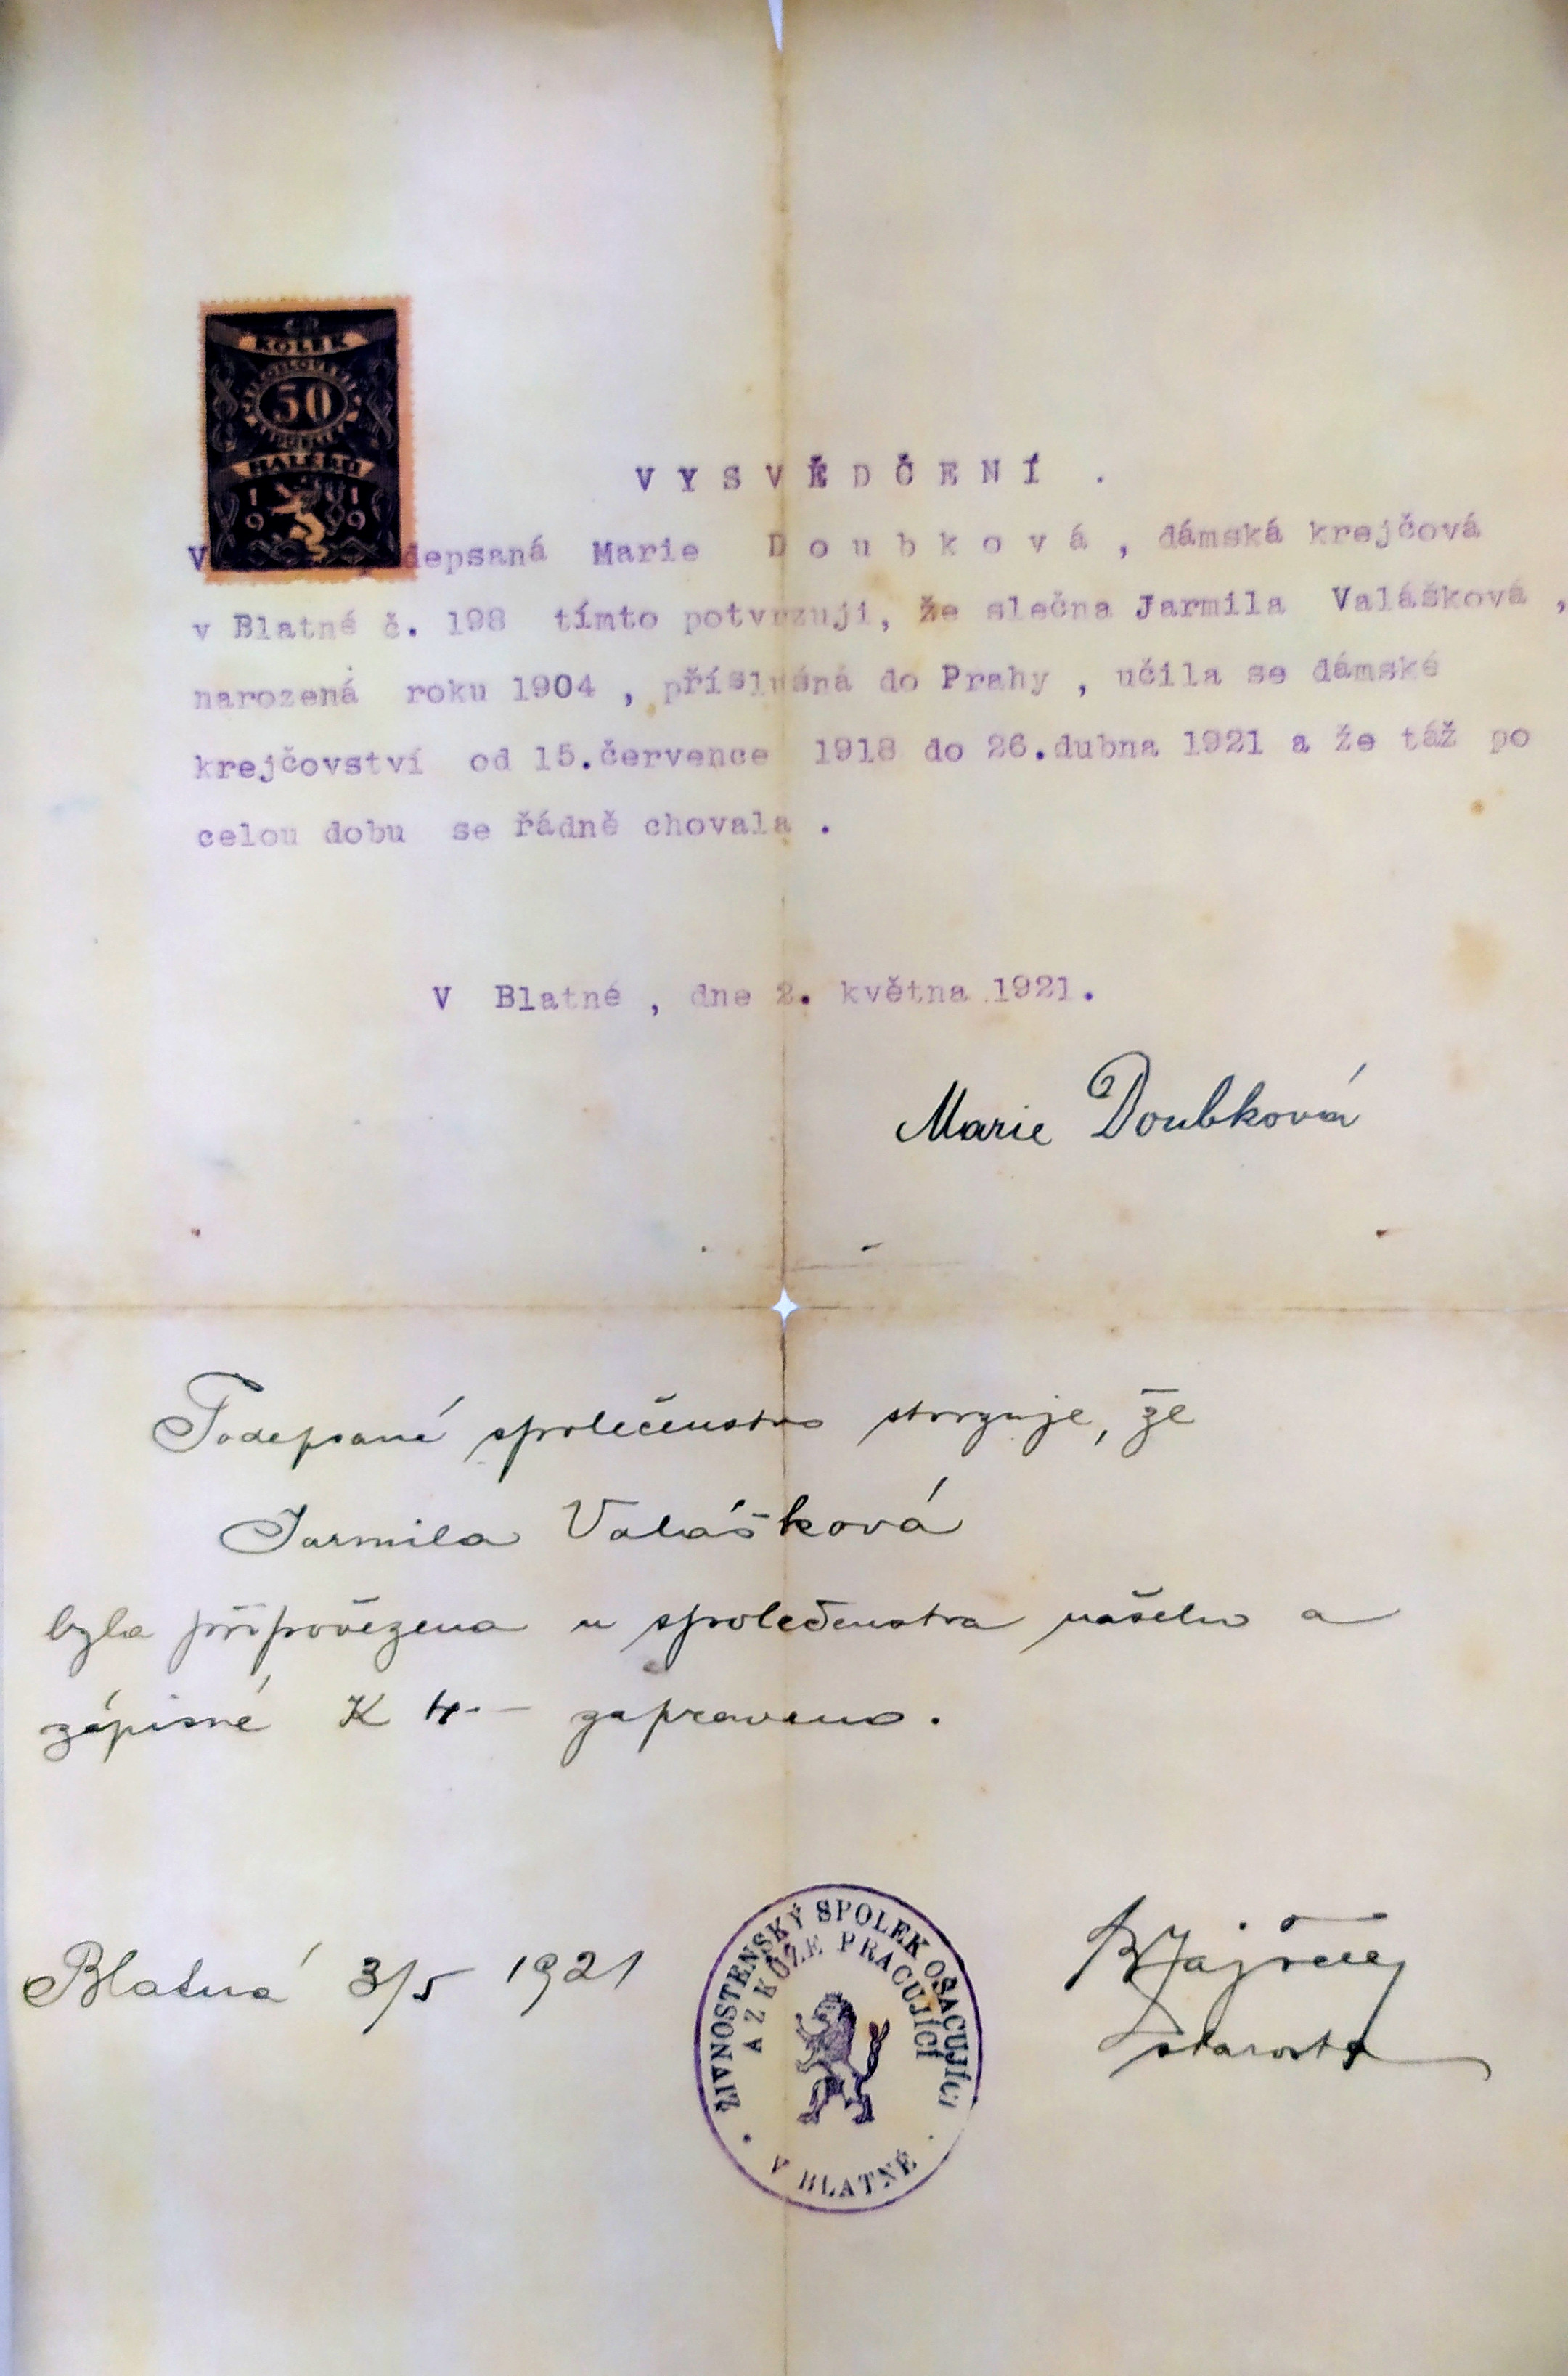 KOLEK
50
HALÉŘŮ
1919
VYSVĚDČENÍ .
depsaná Marie Doubková , dámská krejčová
v Blatné č. 198 tímto potvrzuji, že slečna Jarmila Valášková ,
narozená roku 1904 , příslušná do Prahy , učila se dámské
krejčovství od 15.července 1918 do 26.dubna 1921 a že táž po
celou dobu se řádně chovala .
V Blatné , dne 2. května 1921.
Marie Doubková
Podepsané společenstvo stvrzuje, že
Jarmila Valášková
byla připovězena u společenstva našeho a
zápisné K 4.- zapraveno.
Blatná 3/5 1921
ŽIVNOSTENSKÝ SPOLEK OŠACUJÍCÍ
A Z KŮŽE PRACUJÍCÍ
V BLATNÉ
starosta